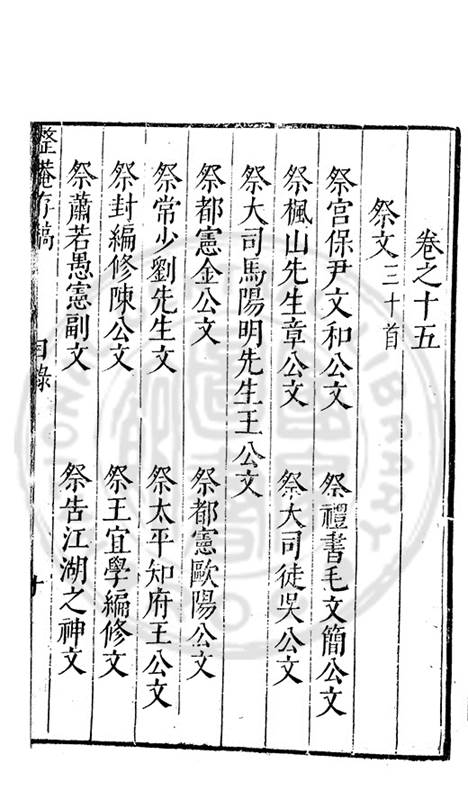 卷之十五
祭文三十首
祭宫保尹文和公文 祭禮書毛文簡公文
祭楓山先生章公文 祭大司徒吳公文
祭大司馬陽明先生王公文
祭都憲金公文 祭都憲歐陽公文
祭常少劉先生文 祭太平知府王公文
祭封編修陳公文 祭王宜學編修文
祭蕭若愚憲副文 祭告江湖之神文
整菴存稿 目錄 十